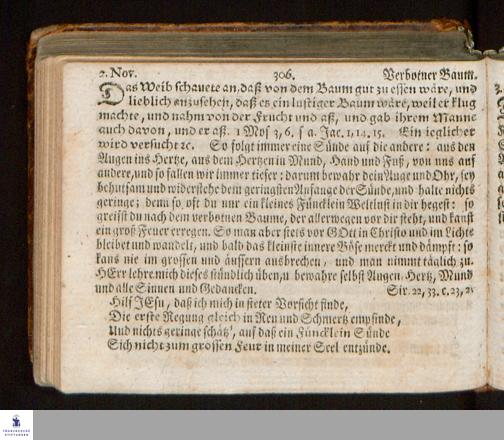 2. Nov. 306. Verbotner Baum.
Das Weib schauete an, daß von dem Baum gut zu essen wäre, und
lieblich anzusehen, daß es ein lustiger Baum wäre, weil er klug
machte, und nahm von der Frucht und aß, und gab ihrem Manne
auch davon, und er aß. 1 Mos 3, 6. s a. Jac. 1, 14. 15. Ein ieglicher
wird versucht ꝛc. So folgt immer eine Sünde auf die andere: aus den
Augen ins Hertze, aus dem Hertzen in Mund, Hand und Fuß, von uns auf
andere, und so fallen wir immer tiefer: darum bewahr dein Auge und Ohr, sey
behutsam und widerstehe dem geringsten Anfange der Sünde, und halte nichts
geringe; denn so oft du nur ein kleines Füncklein Weltlust in dir hegest: so
greifst du nach dem verbotnen Baume, der allerwegen vor dir steht, und kanst
ein groß Feuer erregen. So man aber stets vor GOtt in Christo und im Lichte
bleibet und wandelt, und bald das kleinste innere Böse merckt und dämpft: so
kans nie im grossen und äussern ausbrechen, und man nimmt täglich zu.
HErr lehre mich dieses stündlich üben, u bewahre selbst Augen, Hertz, Mund
und alle Sinnen und Gedancken. Sir. 22, 33. c. 23, 2.
Hilf JEsu, daß ich mich in steter Vorsicht finde,
Die erste Regung gleich in Reu und Schmertz empfinde,
Und nichts geringe schätz', auf daß ein Füncklein Sünde
Sich nicht zum grossen Feur in meiner Seel entzünde.